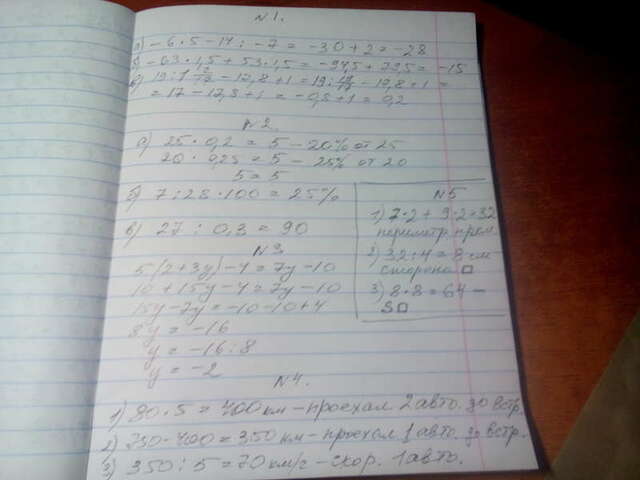 N 1.
а) -6 · 5 - 14 : -7 = -30 + 2 = -28
б) -63 · 1,5 + 53 · 1,5 = -94,5 + 79,5 = -15
= 17 - 17,8 + 1 = -0,8 + 1 = 0,2
N 2.
а) 25 · 0,2 = 5 - 20% от 25
20 · 0,25 = 5 - 25% от 20
5 = 5
б) 7 : 28 · 100 = 25%
в) 27 : 0,3 = 90
N 3
5(2+3y) - 4 = 7y - 10
10 + 15y - 4 = 7y - 10
15y - 7y = -10 - 10 + 4
8y = -16
y = -16 : 8
y = -2
N 5
1) 7·2 + 9·2 = 32
периметр прям.
2) 32 : 4 = 8 см
сторона □
3) 8 · 8 = 64 -
S□
N 4.
1) 80 · 5 = 400 км - проехал 2 авто. до встр.
2) 750 - 400 = 350 км - проехал 1 авто. до встр.
3) 350 : 5 = 70 км/г - скор. 1 авто.